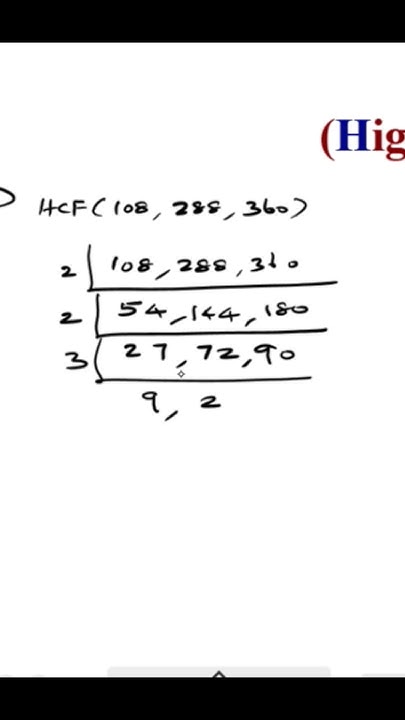 (Hig
HCF(108, 288, 360)
2 108, 288, 360
2 54, 144, 180
3 27, 72, 90
9, 2